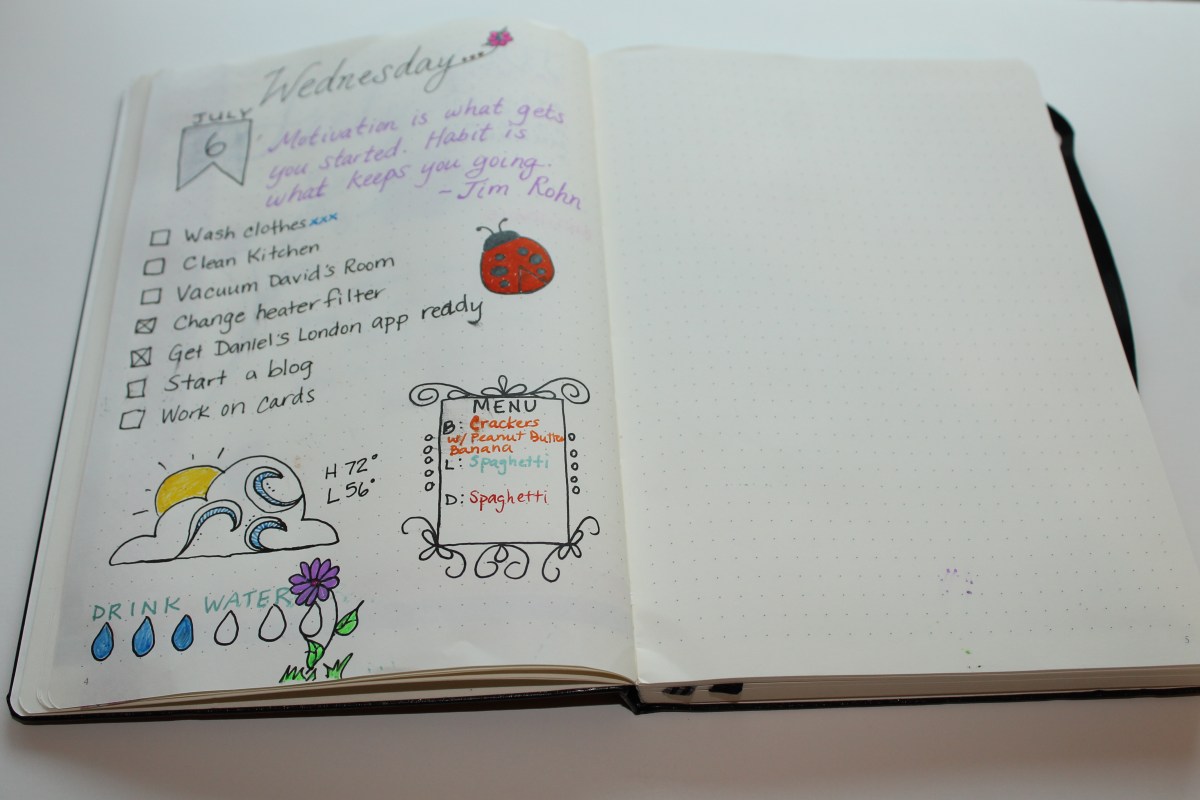 Wednesday...
JULY
6
Motivation is what gets
you started. Habit is
what keeps you going.
- Jim Rohn
Wash clothes xxx
Clean Kitchen
Vacuum David's Room
Change heater filter
Get Daniel's London app ready
Start a blog
Work on cards
MENU
B: Crackers
w/ Peanut Butter
Banana
L: Spaghetti
D: Spaghetti
H 72°
L 56°
DRINK WATER
4
5